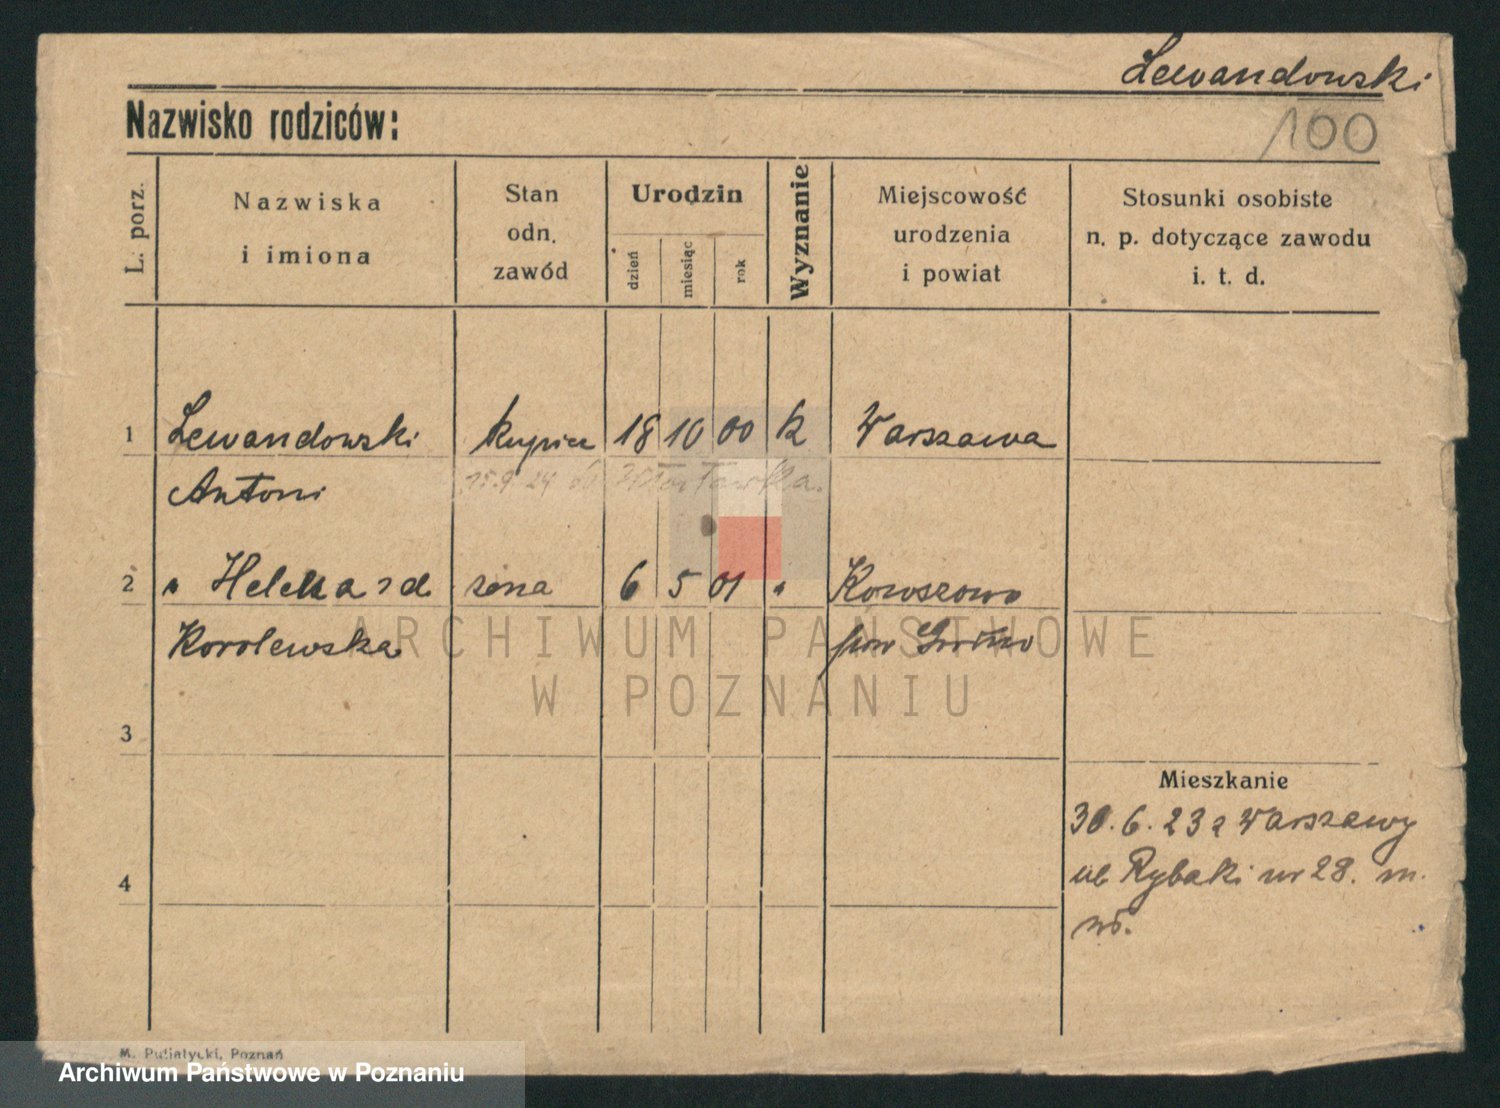 Lewandowski.
Nazwisko rodziców:
100
L. porz.
Nazwiska
i imiona
Stan
odn.
zawód
Urodzin
dzień
miesiąc
rok
Wyznanie
Miejscowość
urodzenia
i powiat
Stosunki osobiste
n. p. dotyczące zawodu
i. t. d.
1 Lewandowski kupiec 18 10 00 k Warszawa
Antoni 15.9.24 do Włocławka.
2 " Helena zd żona 6 5 01 "
Korolewska pow
ARCHIWUM PAŃSTWOWE
W POZNANIU
3
Mieszkanie
30.6.23 z Warszawy
4
ul Rybaki nr 28. m.
M. Putiatycki, Poznań
Archiwum Państwowe w Poznaniu